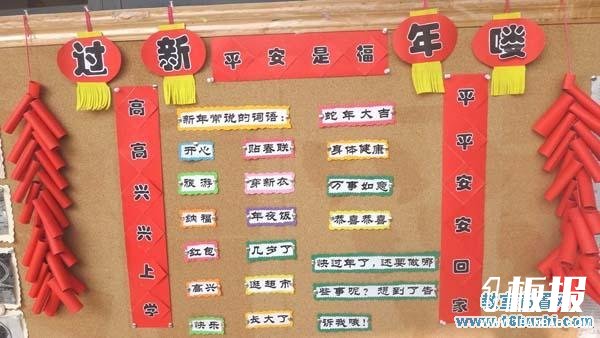 过新年喽
平安是福
高高兴兴上学
平平安安回家
新年常说的词语:
蛇年大吉
开心
贴春联
身体健康
旅游
穿新衣
万事如意
纳福
年夜饭
恭喜恭喜
红包
几岁了
快过年了,还要做哪
高兴
逛超市
些事呢?想到了告
快乐
长大了
诉我哦!
板报
www.16banzhi.com